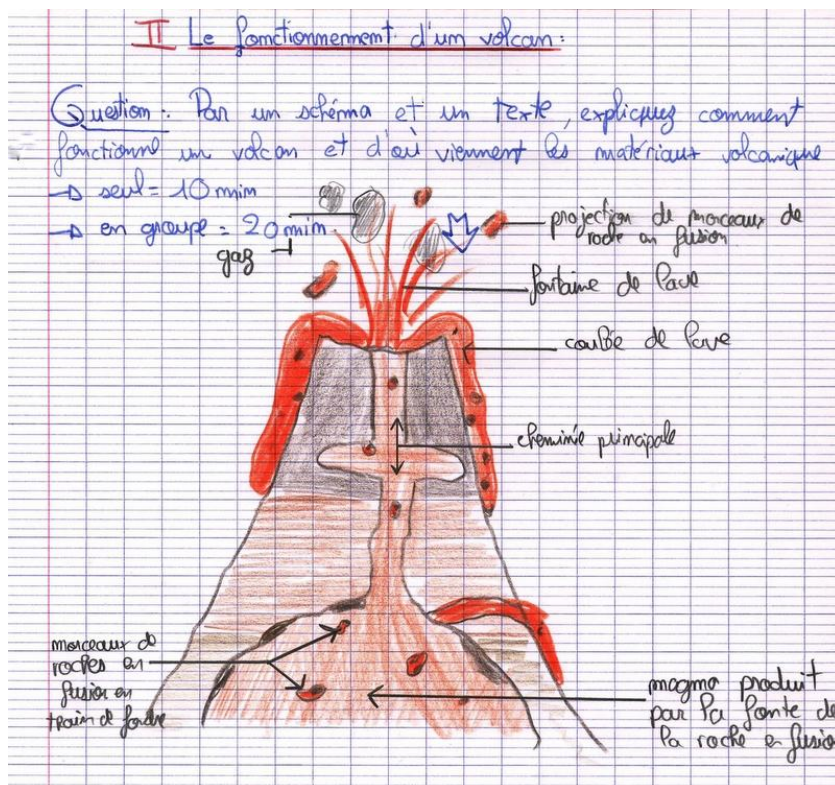 II Le fonctionnement d'un volcan:
Question: Par un schéma et un texte, expliquez comment
fonctionne un volcan et d'où viennent les matériaux volcanique
→ seul = 10 min
→ en groupe = 20 min.
gaz
projection de morceaux de
roche en fusion
fontaine de lave
coulée de lave
cheminée principale
morceaux de
roches en
fusion en
train de fondre
magma produit
par la fonte de
la roche en fusion